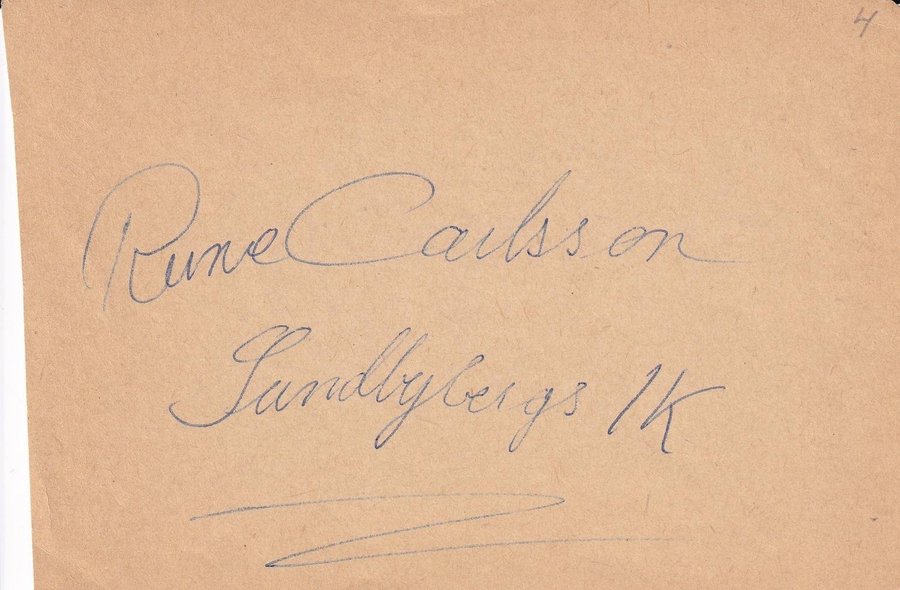 4
Rune Carlsson
Sundbybergs IK